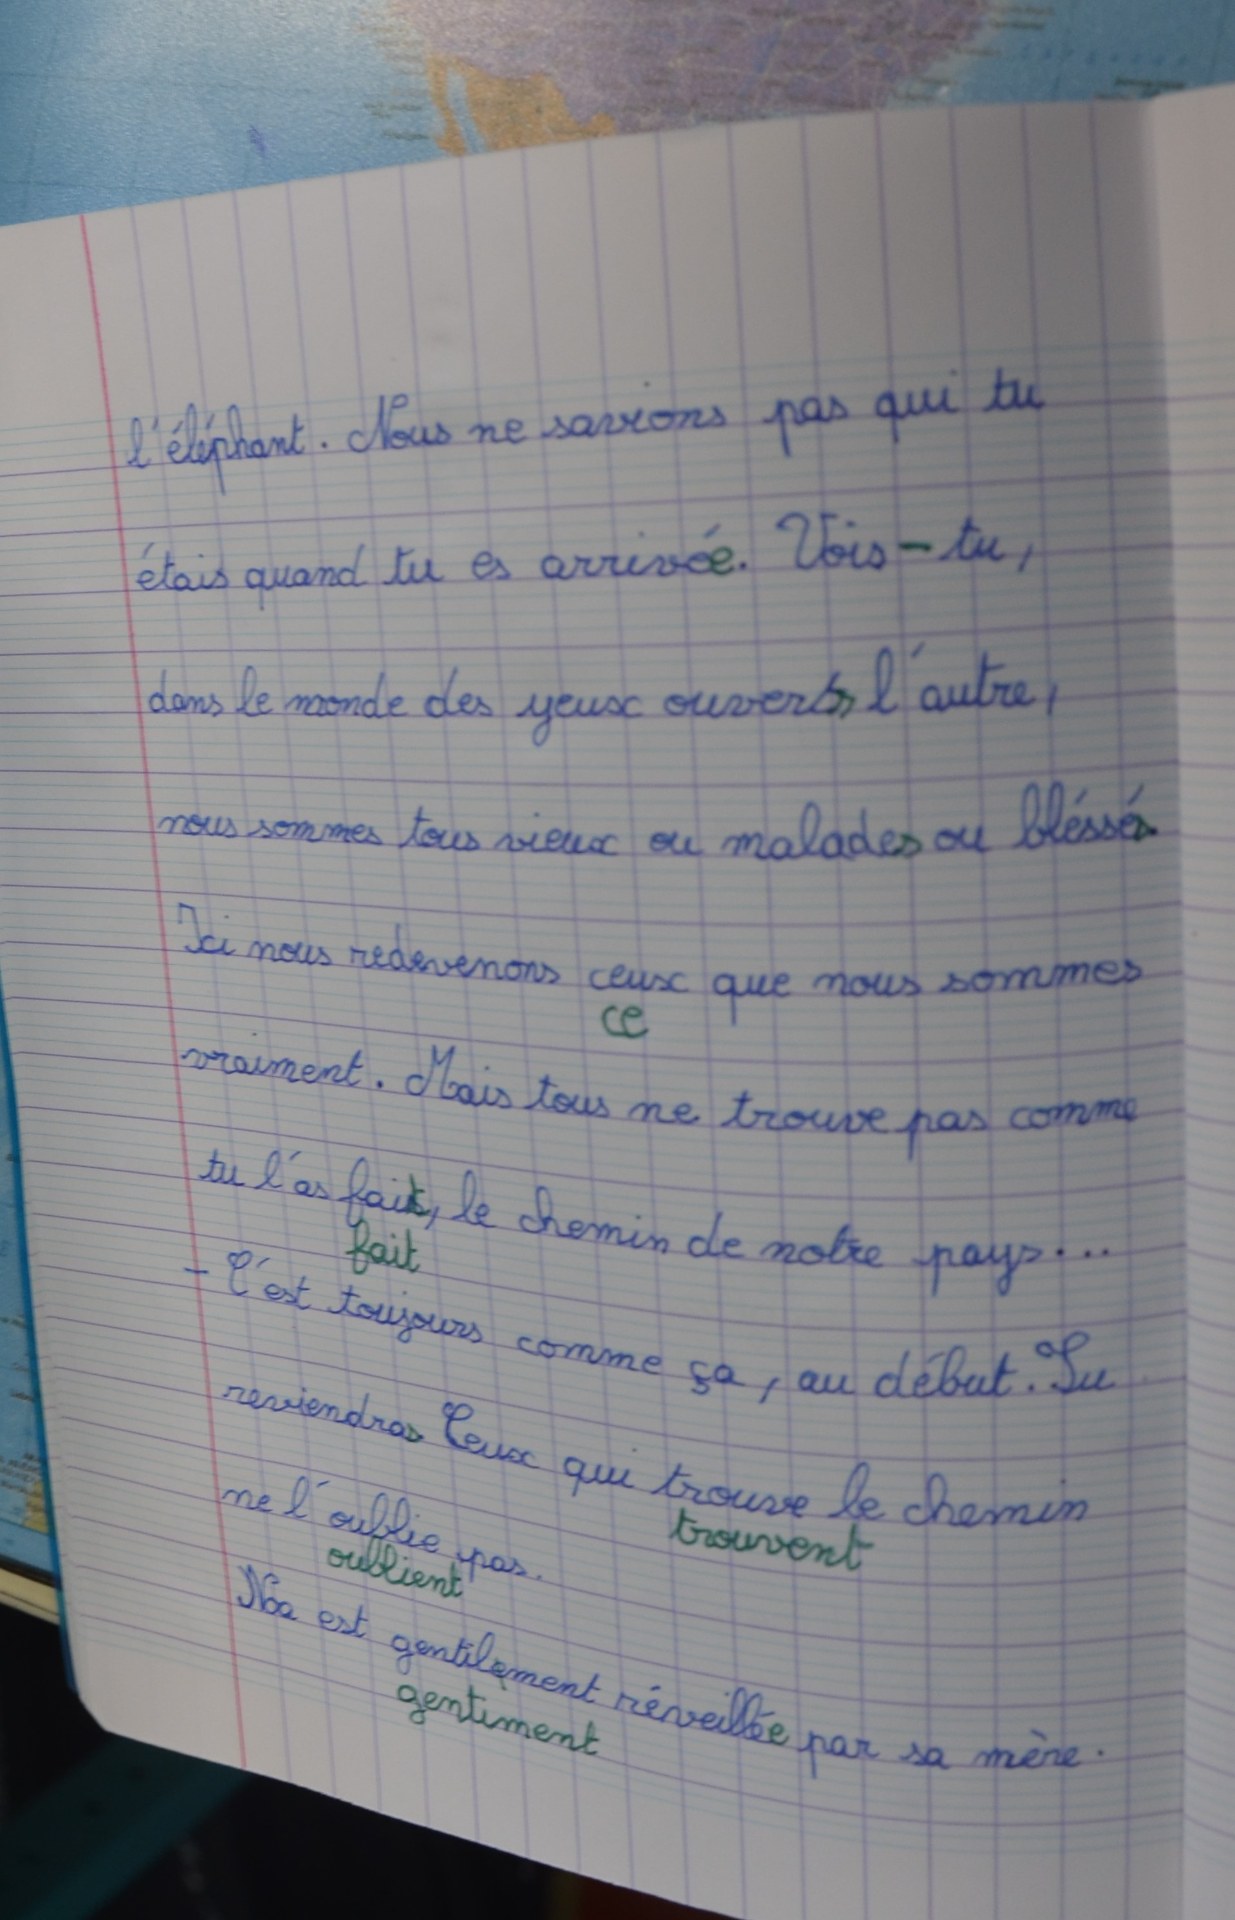 l'éléphant. Nous ne savions pas qui tu
étais quand tu es arrivée. Vois-tu,
dans le monde des yeux ouverts, l'autre,
nous sommes tous vieux ou malades ou bléssés
Ici nous redevenons ceux que nous sommes
ce
vraiment. Mais tous ne trouve pas comme
tu l'as fait, le chemin de notre pays...
fait
- C'est toujours comme ça, au début. Tu
reviendras Ceux qui trouve le chemin
trouvent
ne l'oublie pas.
oublient
Noa est gentilement réveillée par sa mère.
gentiment